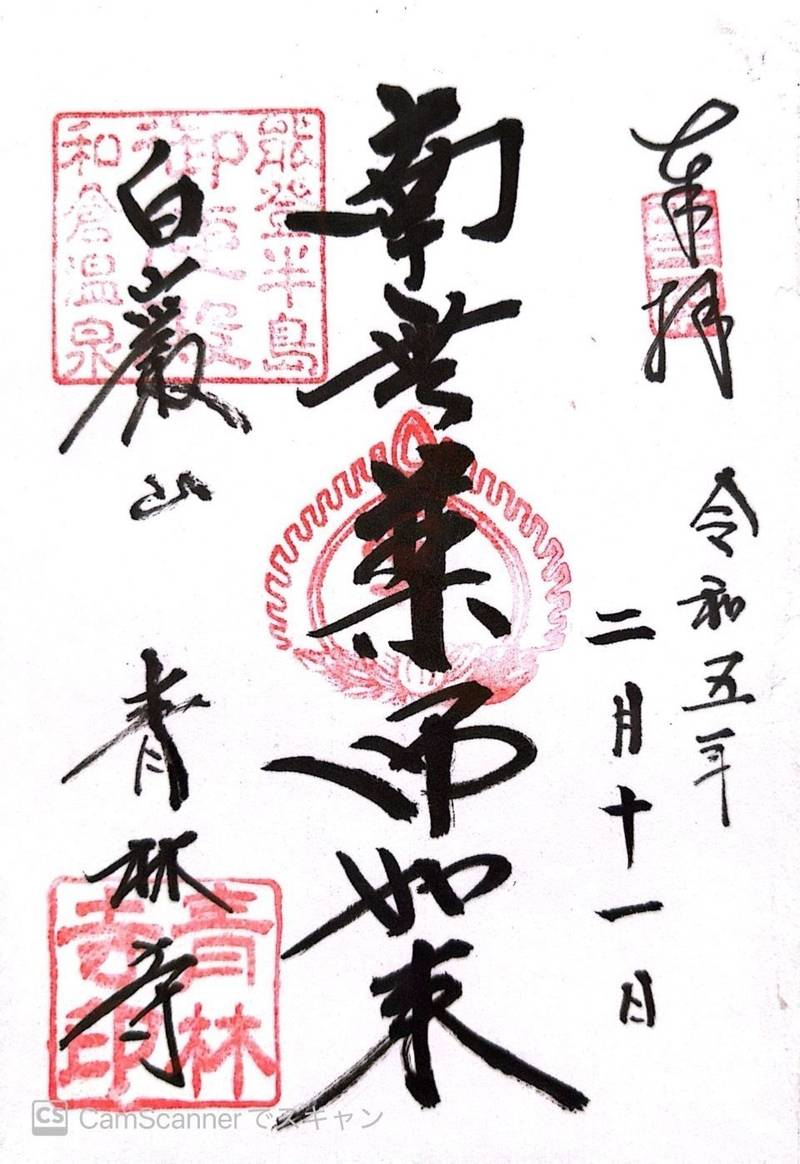 奉拝
令和五年
二月十一日
南無薬師如来
能登半島
御便殿
和倉温泉
白巌山
青林寺
青林
寺印
CS CamScanner でスキャン